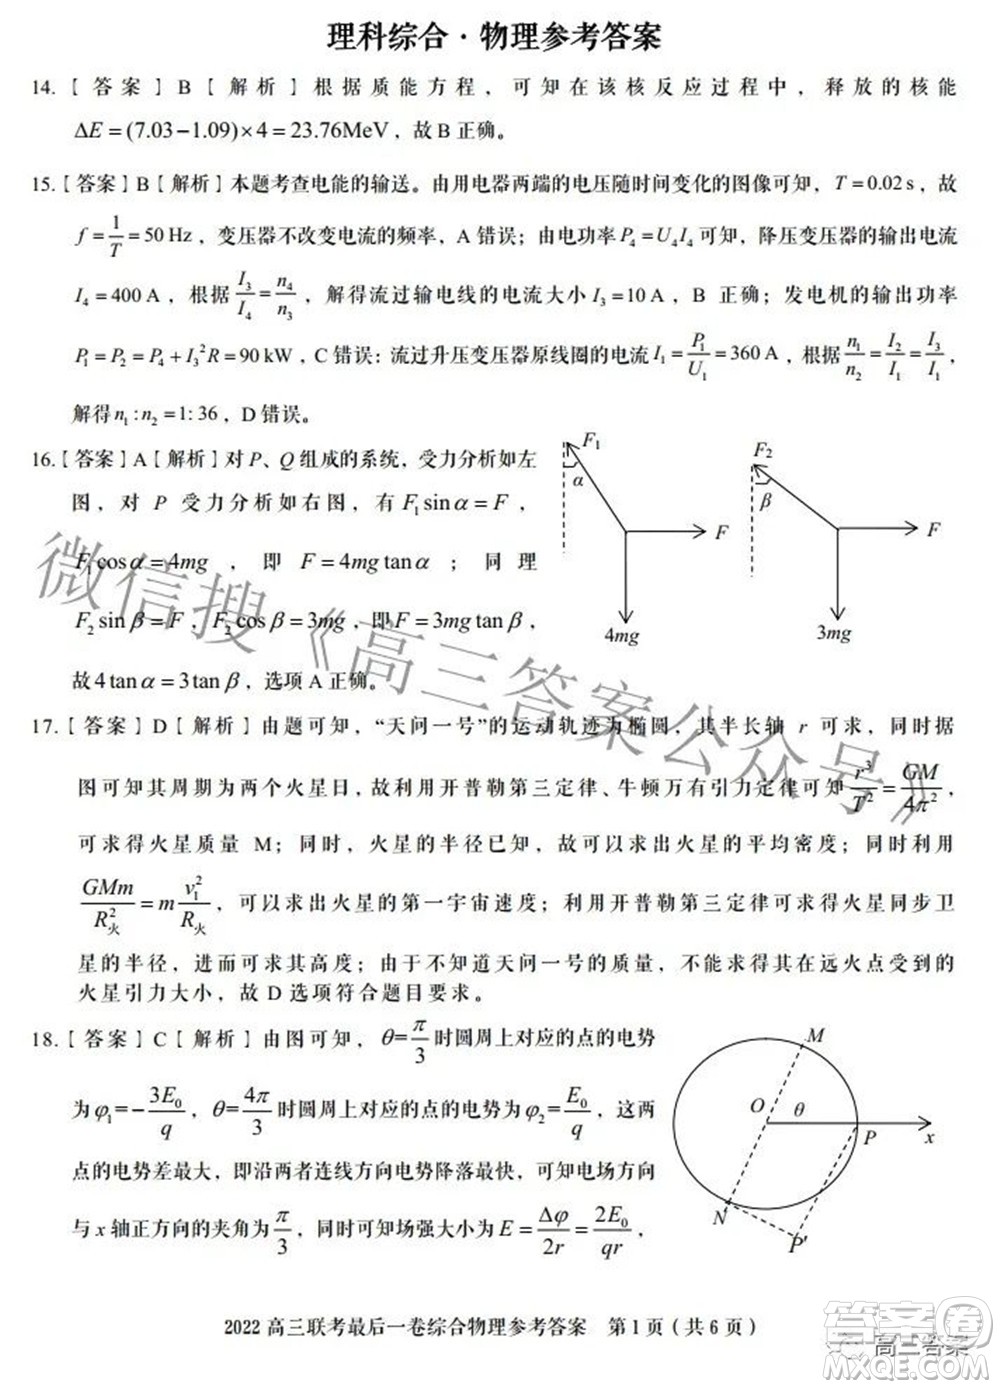 理科综合·物理参考答案
14.【答案】B【解析】根据质能方程，可知在该核反应过程中，释放的核能
ΔE=(7.03-1.09)×4=23.76MeV，故 B 正确。
15.【答案】B【解析】本题考查电能的输送。由用电器两端的电压随时间变化的图像可知，T=0.02 s，故
f=1/T=50 Hz，变压器不改变电流的频率，A 错误；由电功率 P₄=U₄I₄ 可知，降压变压器的输出电流
I₄=400 A，根据 I₃/I₄=n₄/n₃，解得流过输电线的电流大小 I₃=10 A，B 正确；发电机的输出功率
P₁=P₂=P₄+I₃²R=90 kW，C 错误；流过升压变压器原线圈的电流 I₁=P₁/U₁=360 A，根据 n₁/n₂=I₂/I₁=I₃/I₁，
解得 n₁:n₂=1:36，D 错误。
16.【答案】A【解析】对 P、Q 组成的系统，受力分析如左
图，对 P 受力分析如右图，有 F₁sinα=F，
F₁cosα=4mg，即 F=4mg tanα；同理
F₂sinβ=F，F₂cosβ=3mg，即 F=3mg tanβ，
故 4tanα=3tanβ，选项 A 正确。
F₁
α
F
4mg
F₂
β
F
3mg
17.【答案】D【解析】由题可知，“天问一号”的运动轨迹为椭圆，其半长轴 r 可求，同时据
图可知其周期为两个火星日，故利用开普勒第三定律、牛顿万有引力定律可知 r³/T²=GM/4π²，
可求得火星质量 M；同时，火星的半径已知，故可以求出火星的平均密度；同时利用
GMm/R火²=m v₁²/R火，可以求出火星的第一宇宙速度；利用开普勒第三定律可求得火星同步卫
星的半径，进而求其高度；由于不知道天问一号的质量，不能求得其在远火点受到的
火星引力大小，故 D 选项符合题目要求。
18.【答案】C【解析】由图可知，θ=π/3 时圆周上对应的点的电势
为 φ₁=-3E₀/q，θ=4π/3 时圆周上对应的点的电势为 φ₂=E₀/q，这两
点的电势差最大，即沿两者连线方向电势降落最快，可知电场方向
与 x 轴正方向的夹角为 π/3，同时可知场强大小为 E=Δφ/2r=2E₀/qr，
M
O
θ
P
x
N
P'
2022 高三联考最后一卷综合物理参考答案 第 1 页（共 6 页）
微信搜《高三答案公众号》
高三答案
答案圈
MXQE.COM